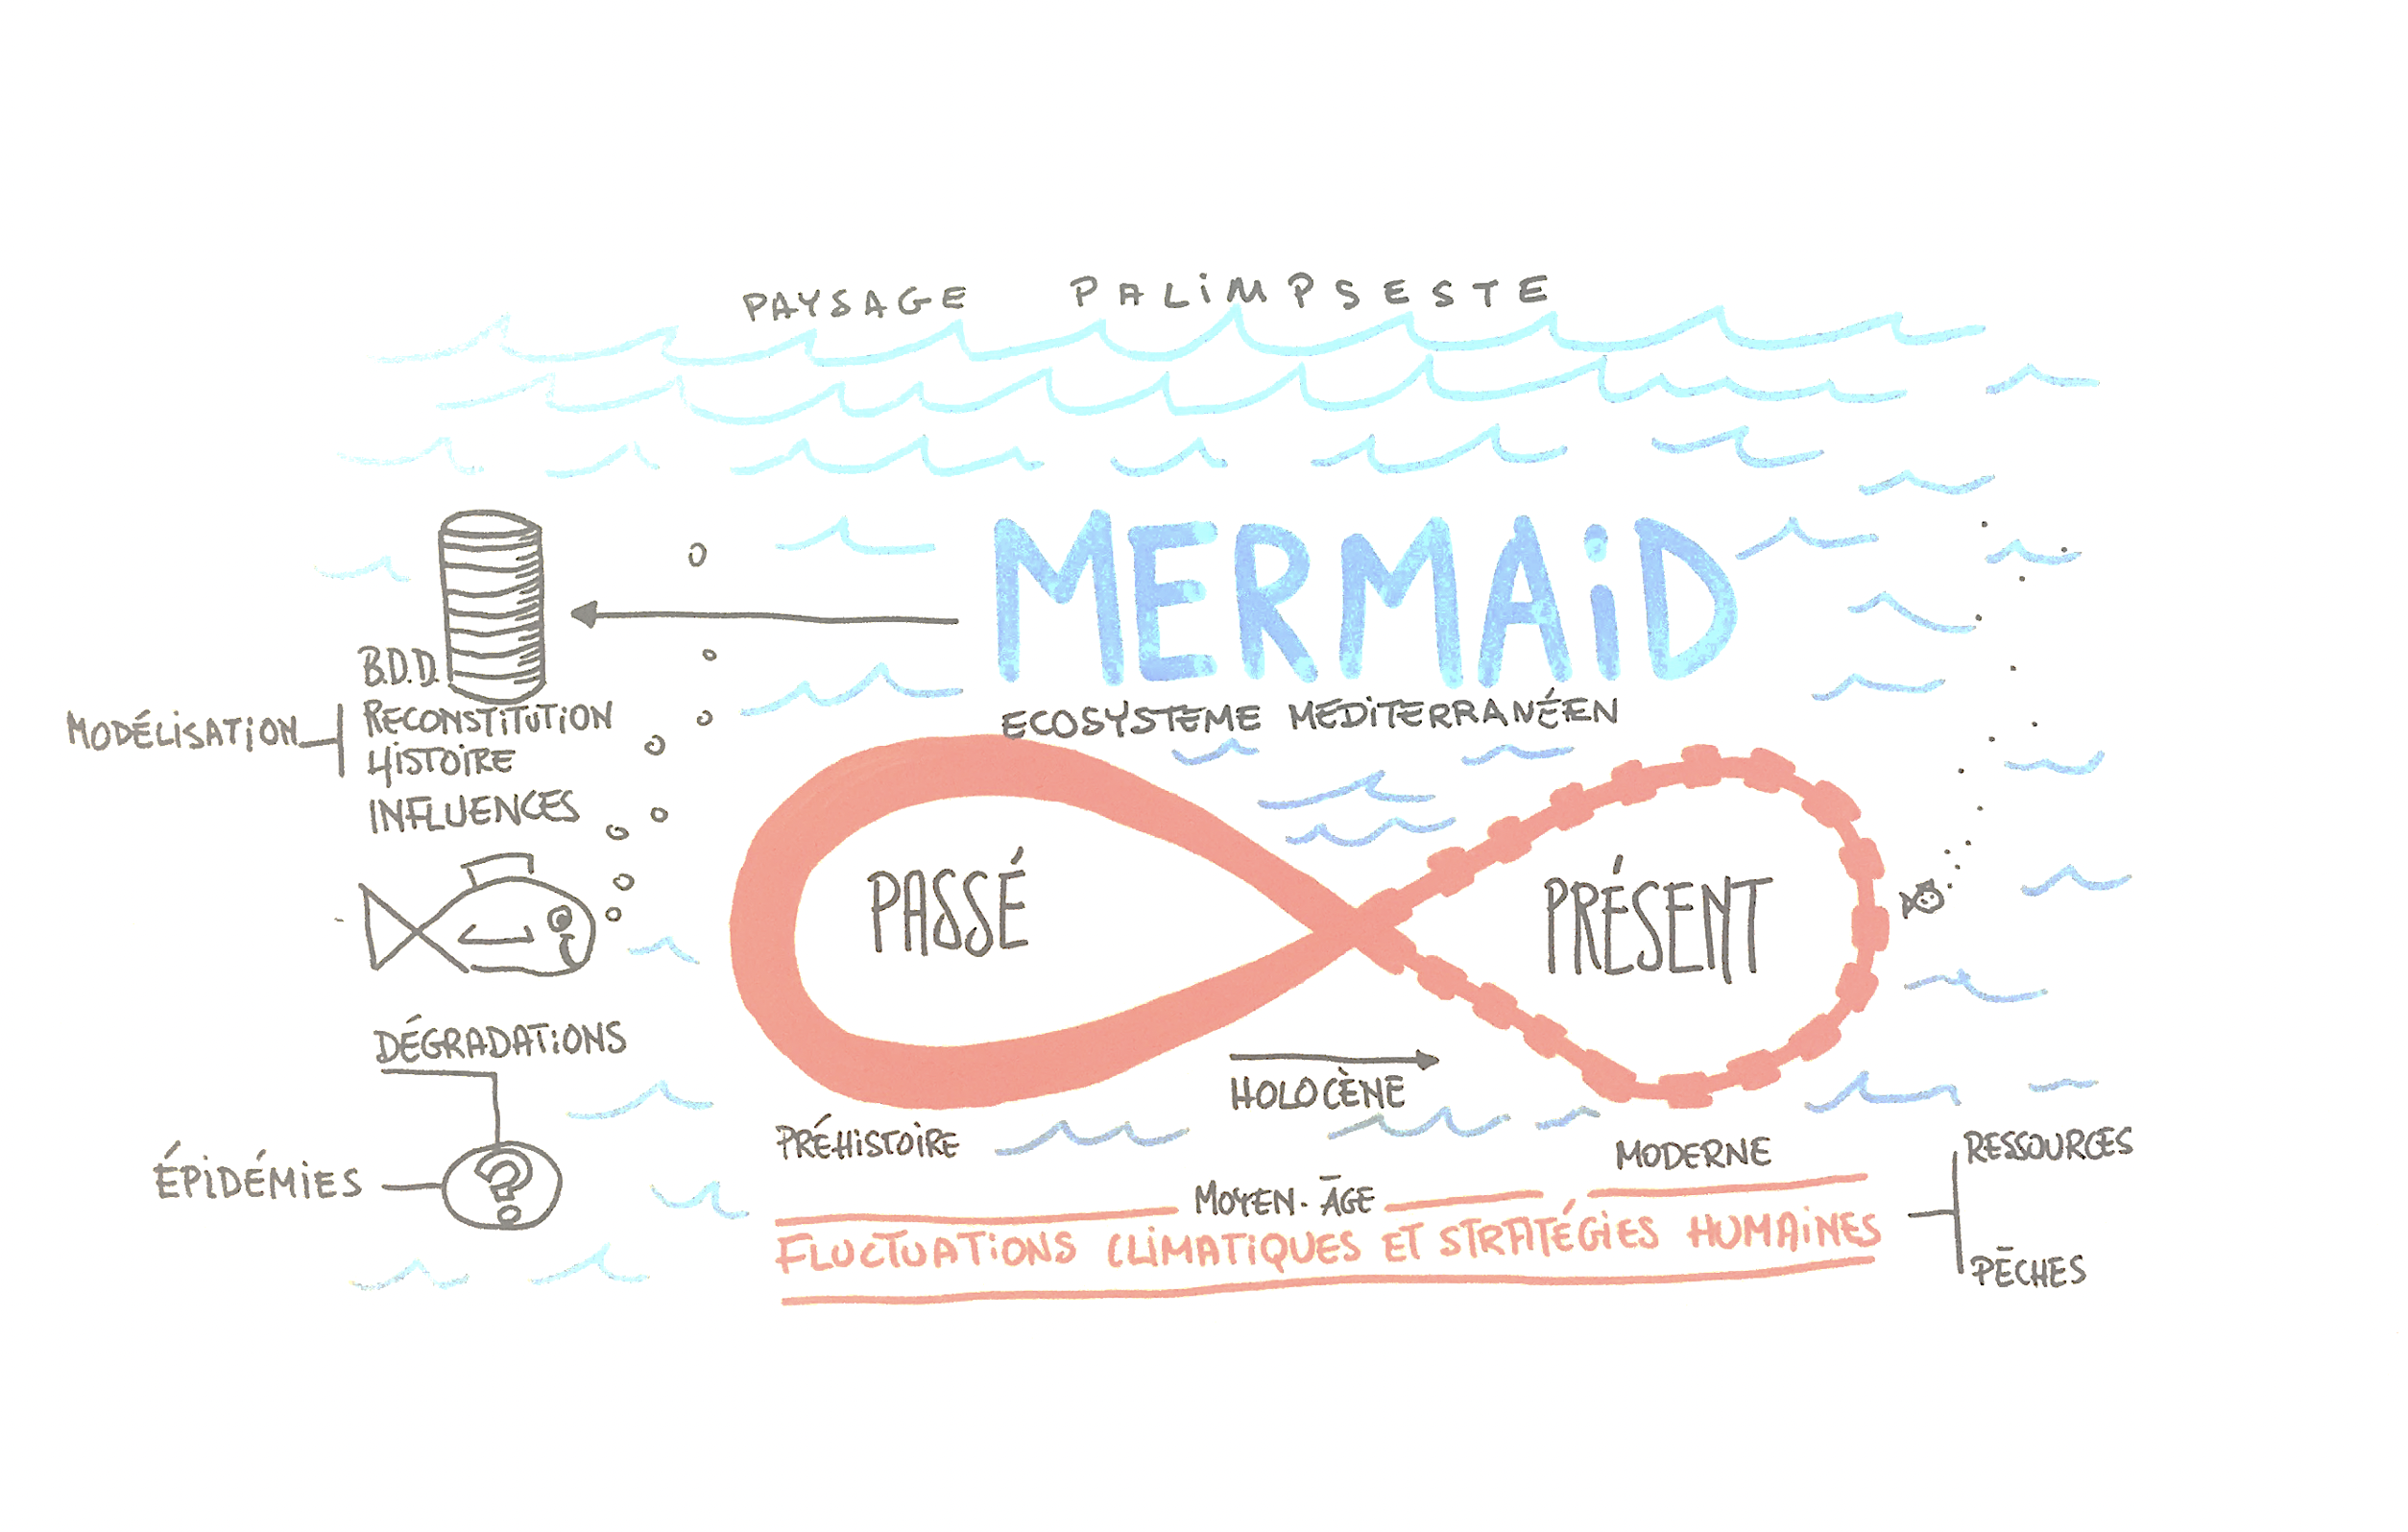 PAYSAGE PALiMPSESTE
MERMAiD
ECOSYSTEME MEDiTERRANÉEN
B.D.D.
MODÉLiSATiON
RECONSTiTUTiON
HiSTOiRE
INFLUENCES
PASSÉ
PRÉSENT
DÉGRADATiONS
ÉPiDÉMiES
?
HOLOCÈNE
PRÉHiSTOiRE
MOYEN-ÂGE
MODERNE
FLUCTUATiONS CLiMATiQUES ET STRATÉGiES HUMAiNES
RESSOURCES
PÊCHES